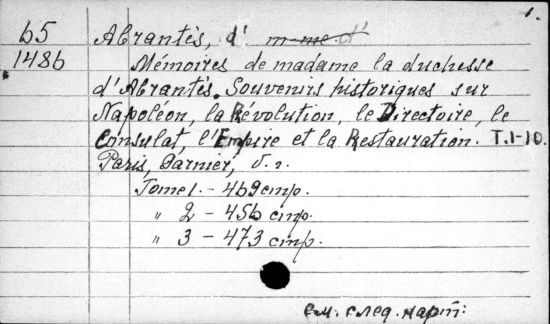 1.
65 Abrantès, d' m-me d'
1486 Mémoires de madame la duchesse
d'Abrantès. Souvenirs historiques sur
Napoléon, la Révolution, le Directoire, le
Consulat, l'Empire et la Restauration. T.1-10.
Paris, Garnier, s. a.
Tome 1. - 469 стр.
" 2 - 456 стр.
" 3 - 473 стр.
см. след. карт: